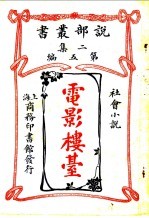 說部叢書
二集
第五編
社會小說
電影樓臺
上海商務印書館發行